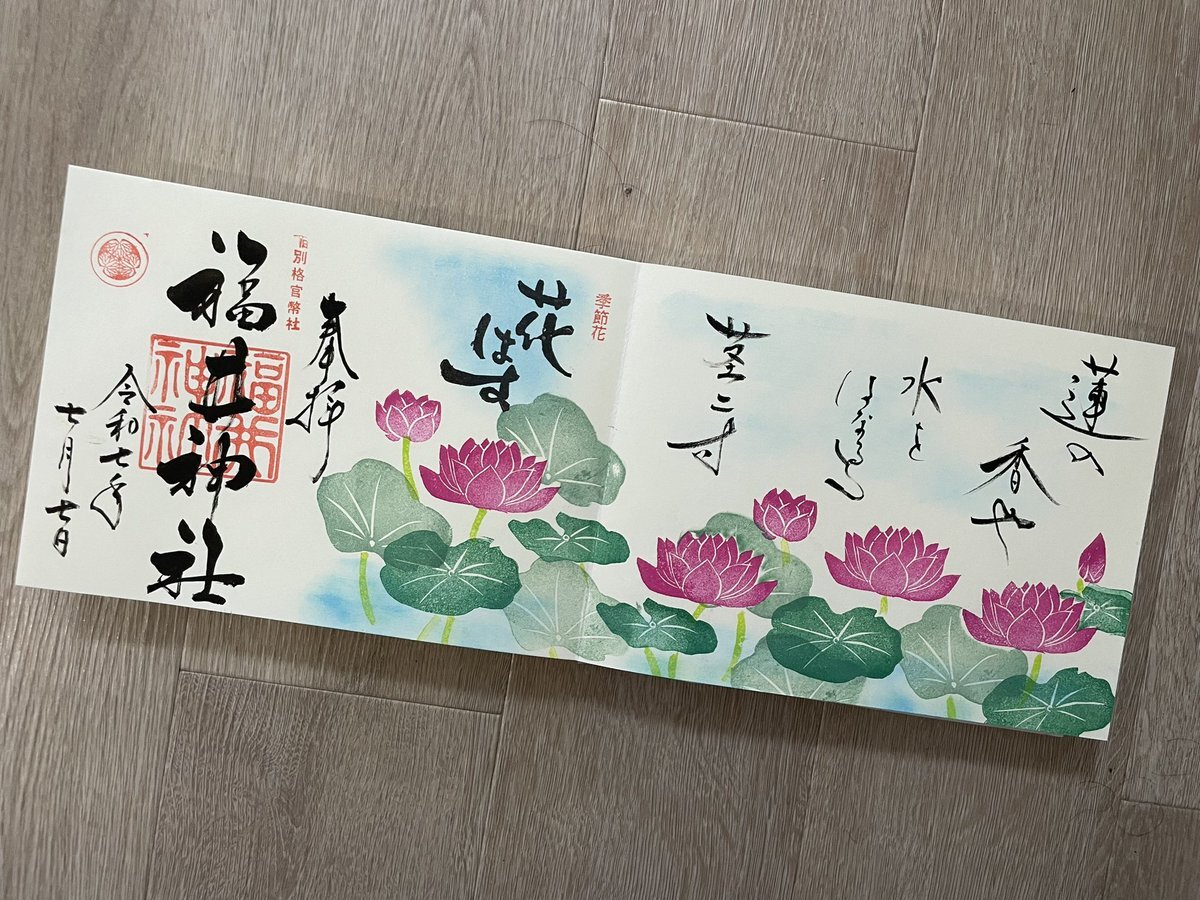 蓮の
香や
水を
はなるる
茎二寸
季節花
花
はす
奉拝
旧別格官幣社
福井神社
福井
神社
令和七年
七月七日